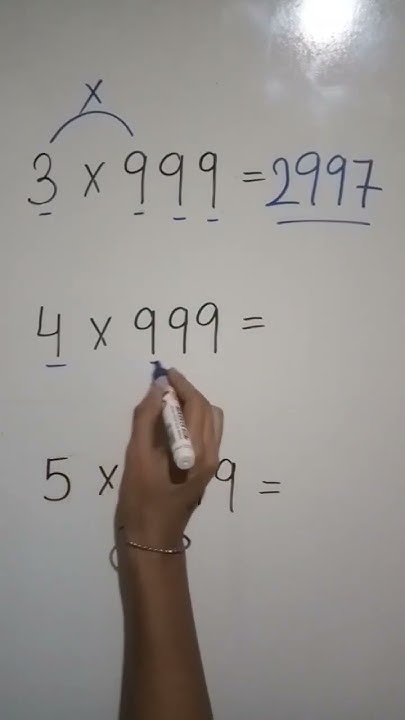 x
3 x 999 = 2997
4 x 999 =
5 x 9 =